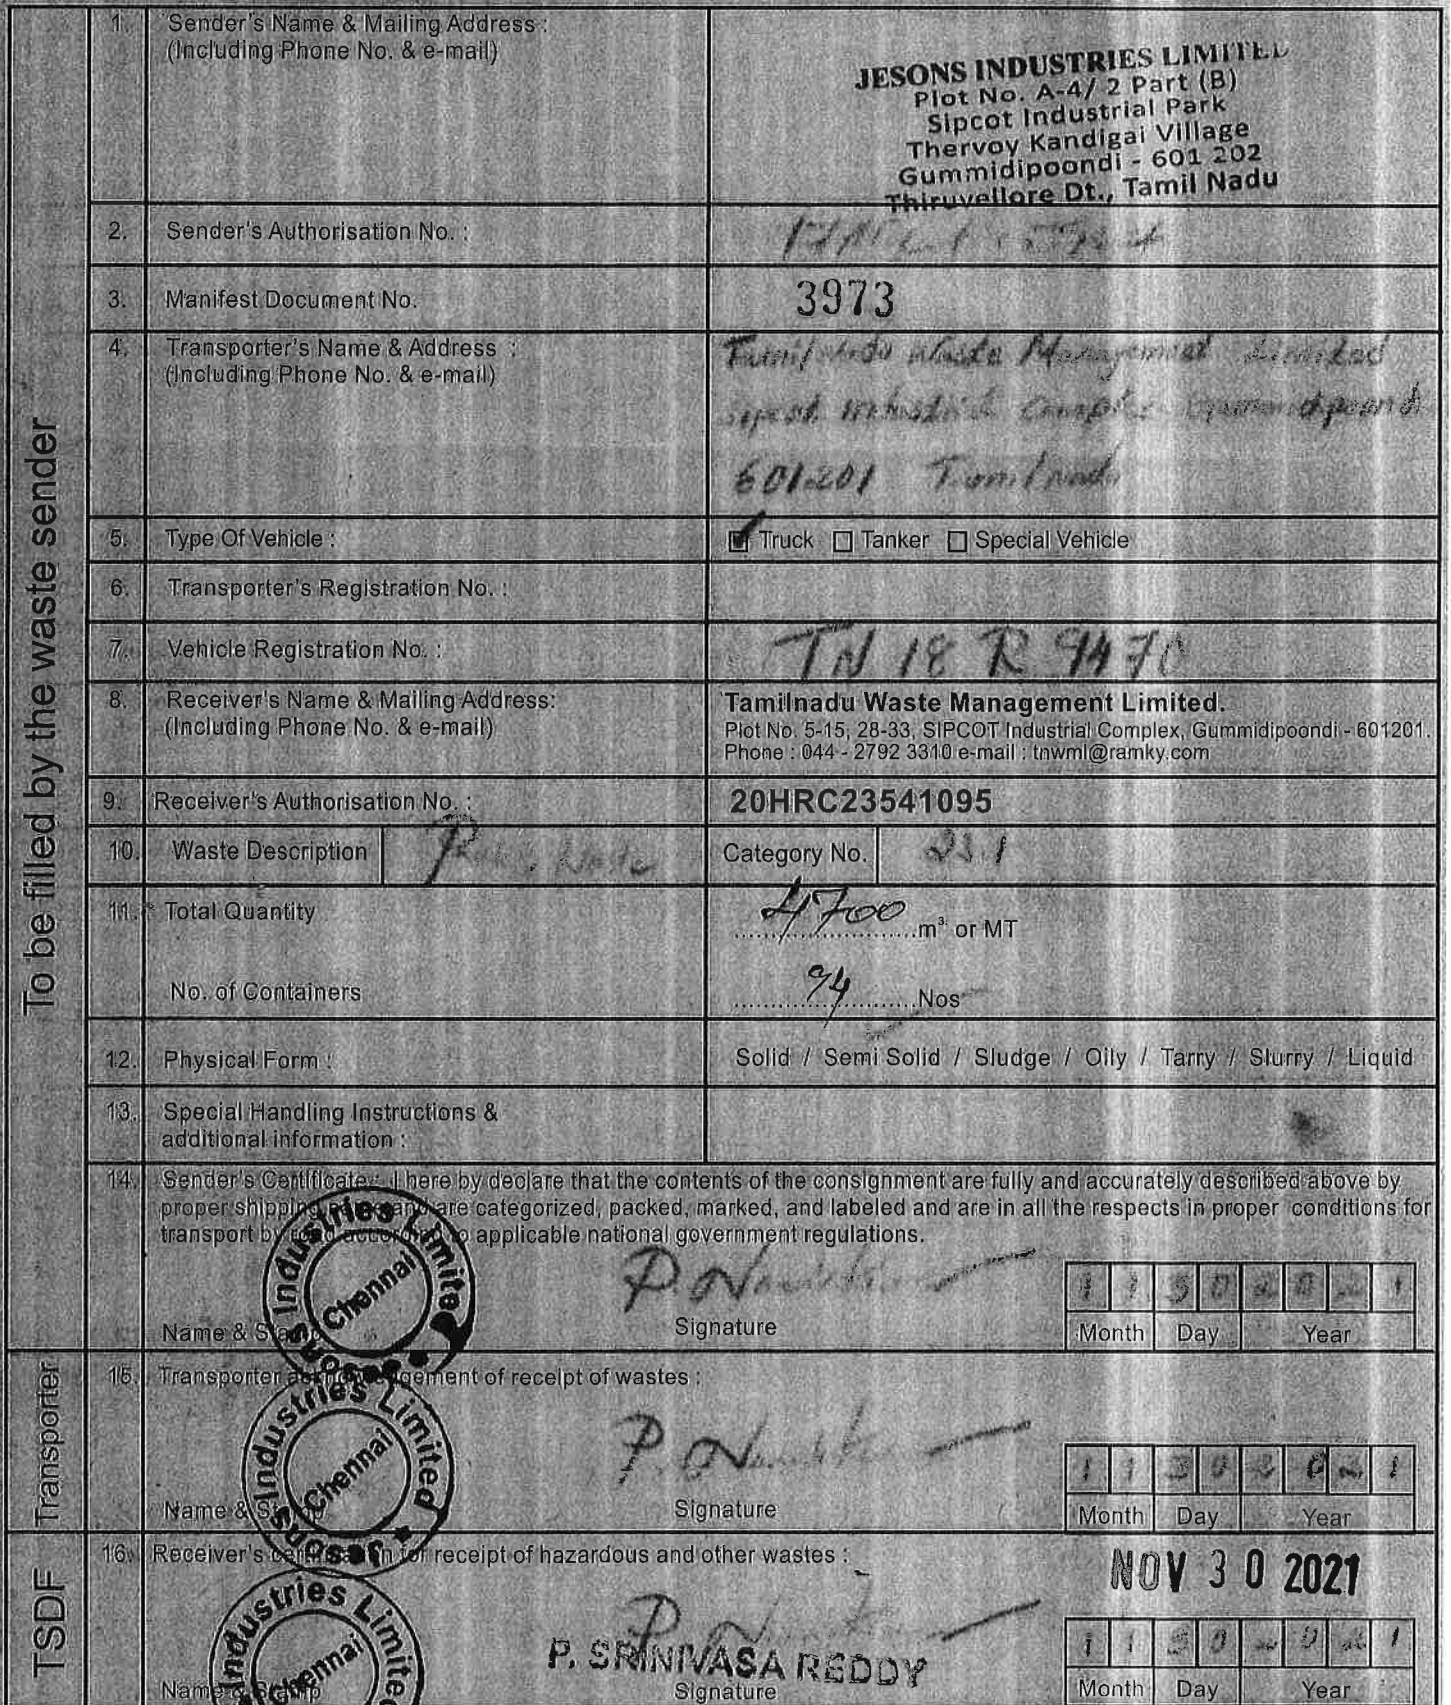 To be filled by the waste sender
1. Sender's Name & Mailing Address :
(Including Phone No. & e-mail)
JESONS INDUSTRIES LIMITED
Plot No. A-4/ 2 Part (B)
Sipcot Industrial Park
Thervoy Kandigai Village
Gummidipoondi - 601 202
Thiruvellore Dt., Tamil Nadu
2. Sender's Authorisation No. :
3. Manifest Document No. 3973
4. Transporter's Name & Address :
(Including Phone No. & e-mail)
Tamilnadu Waste Management Limited
Sipcot Industrial Complex Gummidipoondi
601201 Tamilnadu
5. Type Of Vehicle : Truck Tanker Special Vehicle
6. Transporter's Registration No. :
7. Vehicle Registration No. : TN 18 R 9470
8. Receiver's Name & Mailing Address:
(Including Phone No. & e-mail)
Tamilnadu Waste Management Limited.
Plot No. 5-15, 28-33, SIPCOT Industrial Complex, Gummidipoondi - 601201.
Phone : 044 - 2792 3310 e-mail : tnwml@ramky.com
9. Receiver's Authorisation No. : 20HRC23541095
10. Waste Description Waste Category No. 23.1
11. Total Quantity 4700 m³ or MT
No. of Containers 94 Nos
12. Physical Form : Solid / Semi Solid / Sludge / Oily / Tarry / Slurry / Liquid
13. Special Handling Instructions &
additional information :
14. Sender's Certificate : I here by declare that the contents of the consignment are fully and accurately described above by
proper shipping name and are categorized, packed, marked, and labeled and are in all the respects in proper conditions for
transport by road according to applicable national government regulations.
Jesons Industries Limited
Chennai
Name & Stamp Signature
1 1 3 0 2 0 2 1
Month Day Year
Transporter
15. Transporter acknowledgement of receipt of wastes :
Jesons Industries Limited
Chennai
Name & Stamp Signature
1 1 3 0 2 0 2 1
Month Day Year
TSDF
16. Receiver's certification for receipt of hazardous and other wastes :
NOV 30 2021
Industries Limited
Chennai
P. SRINIVASA REDDY
Name & Stamp Signature
1 1 3 0 2 0 2 1
Month Day Year